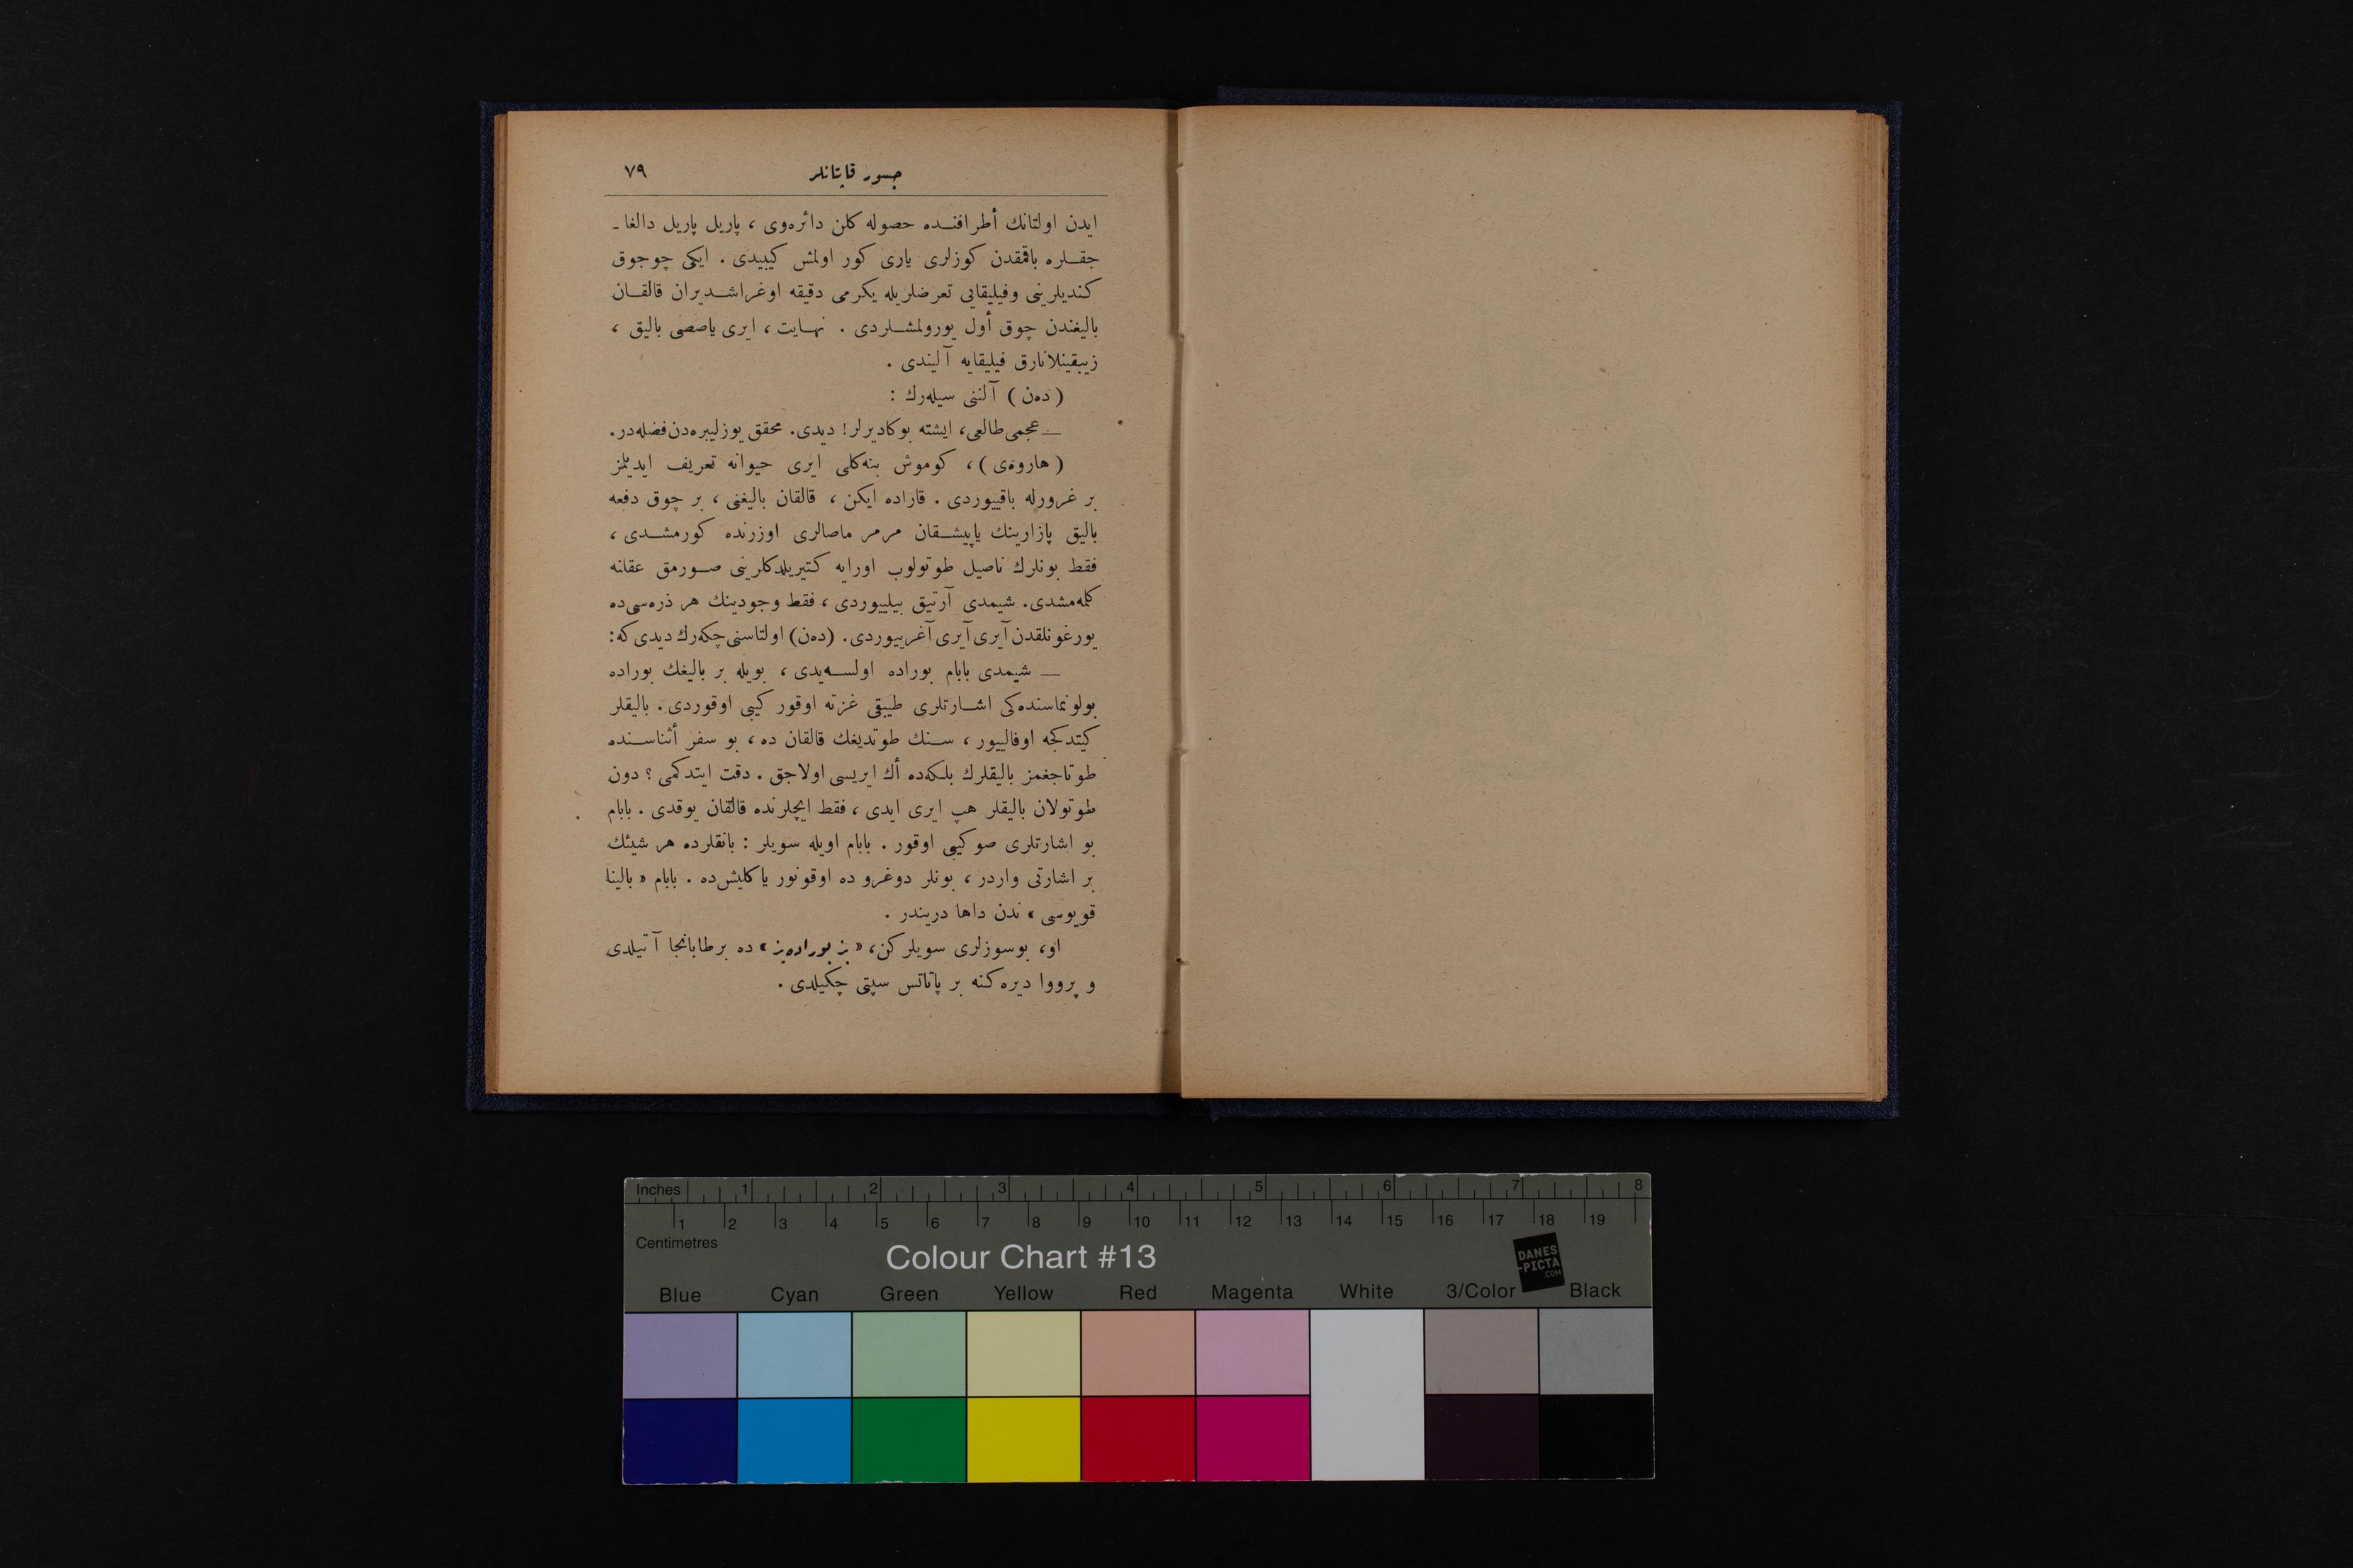 جسور قاپتانلر ٧٩
ایدن اولتانك أطرافنده حصوله کلن دائره‌وی ، پاریل پاریل دالغا ـ
جقلره باقمقدن کوزلری یاری کور اولمش کیبیدی . ایکی چوجوق
کندیلرینی وفیلیقایی تعرضلریله یکرمی دقیقه اوغراشدیران قالقان
بالیغندن چوق أول یورولمشلردی . نهایت ، ایری یاصصی بالیق ،
زیپقینلانارق فیلیقایه آلیندی .
( ده‌ن ) آلننی سیله‌رك :
— عجمی طالعی، ایشته بوکادیرلر! دیدی. محقق یوزلیبره‌دن فضله‌در.
( هاروه‌ی ) ، کوموش بنه‌کلی ایری حیوانه تعریف ایدیلمز
بر غرورله باقییوردی . قاراده ایکن ، قالقان بالیغنی ، بر چوق دفعه
بالیق پازارینك یاپیشقان مرمر ماصالری اوزرنده کورمشدی ،
فقط بونلرك ناصیل طوتولوب اورایه کتیریلدکلرینی صورمق عقلنه
کلمه‌مشدی. شیمدی آرتیق بیلییوردی ، فقط وجودینك هر ذره‌سی‌ده
یورغونلقدن آیری آیری آغرییوردی. (ده‌ن) اولتاسنی چکه‌رك دیدی که:
— شیمدی بابام بوراده اولسه‌یدی ، بویله بر بالیغك بوراده
بولونماسنده‌کی اشارتلری طیبقی غزته اوقور کیبی اوقوردی . بالیقلر
کیتدکجه اوفالییور ، سنك طوتدیغك قالقان ده ، بو سفر أثناسنده
طوتاجغمز بالیقلرك بلکه‌ده أك ایریسی اولاجق . دقت ایتدکمی ؟ دون
طوتولان بالیقلر هپ ایری ایدی ، فقط ایچلرنده قالقان یوقدی . بابام
بو اشارتلری صو کیبی اوقور . بابام اویله سویلر : بانقلرده هر شیئك
بر اشارتی واردر ، بونلر دوغرو ده اوقونور یاکلیش‌ده . بابام « بالینا
قویوسی » ندن داها دریندر .
او، بوسوزلری سویلرکن، « بز بوراده‌یز » ده برطابانجا آتیلدی
و پرووا دیره‌کنه بر پاتاتس سپتی چکیلدی .
Inches 1 2 3 4 5 6 7 8
1 2 3 4 5 6 7 8 9 10 11 12 13 14 15 16 17 18 19
Centimetres
Colour Chart #13
DANES
-PICTA
.COM
Blue Cyan Green Yellow Red Magenta White 3/Color Black